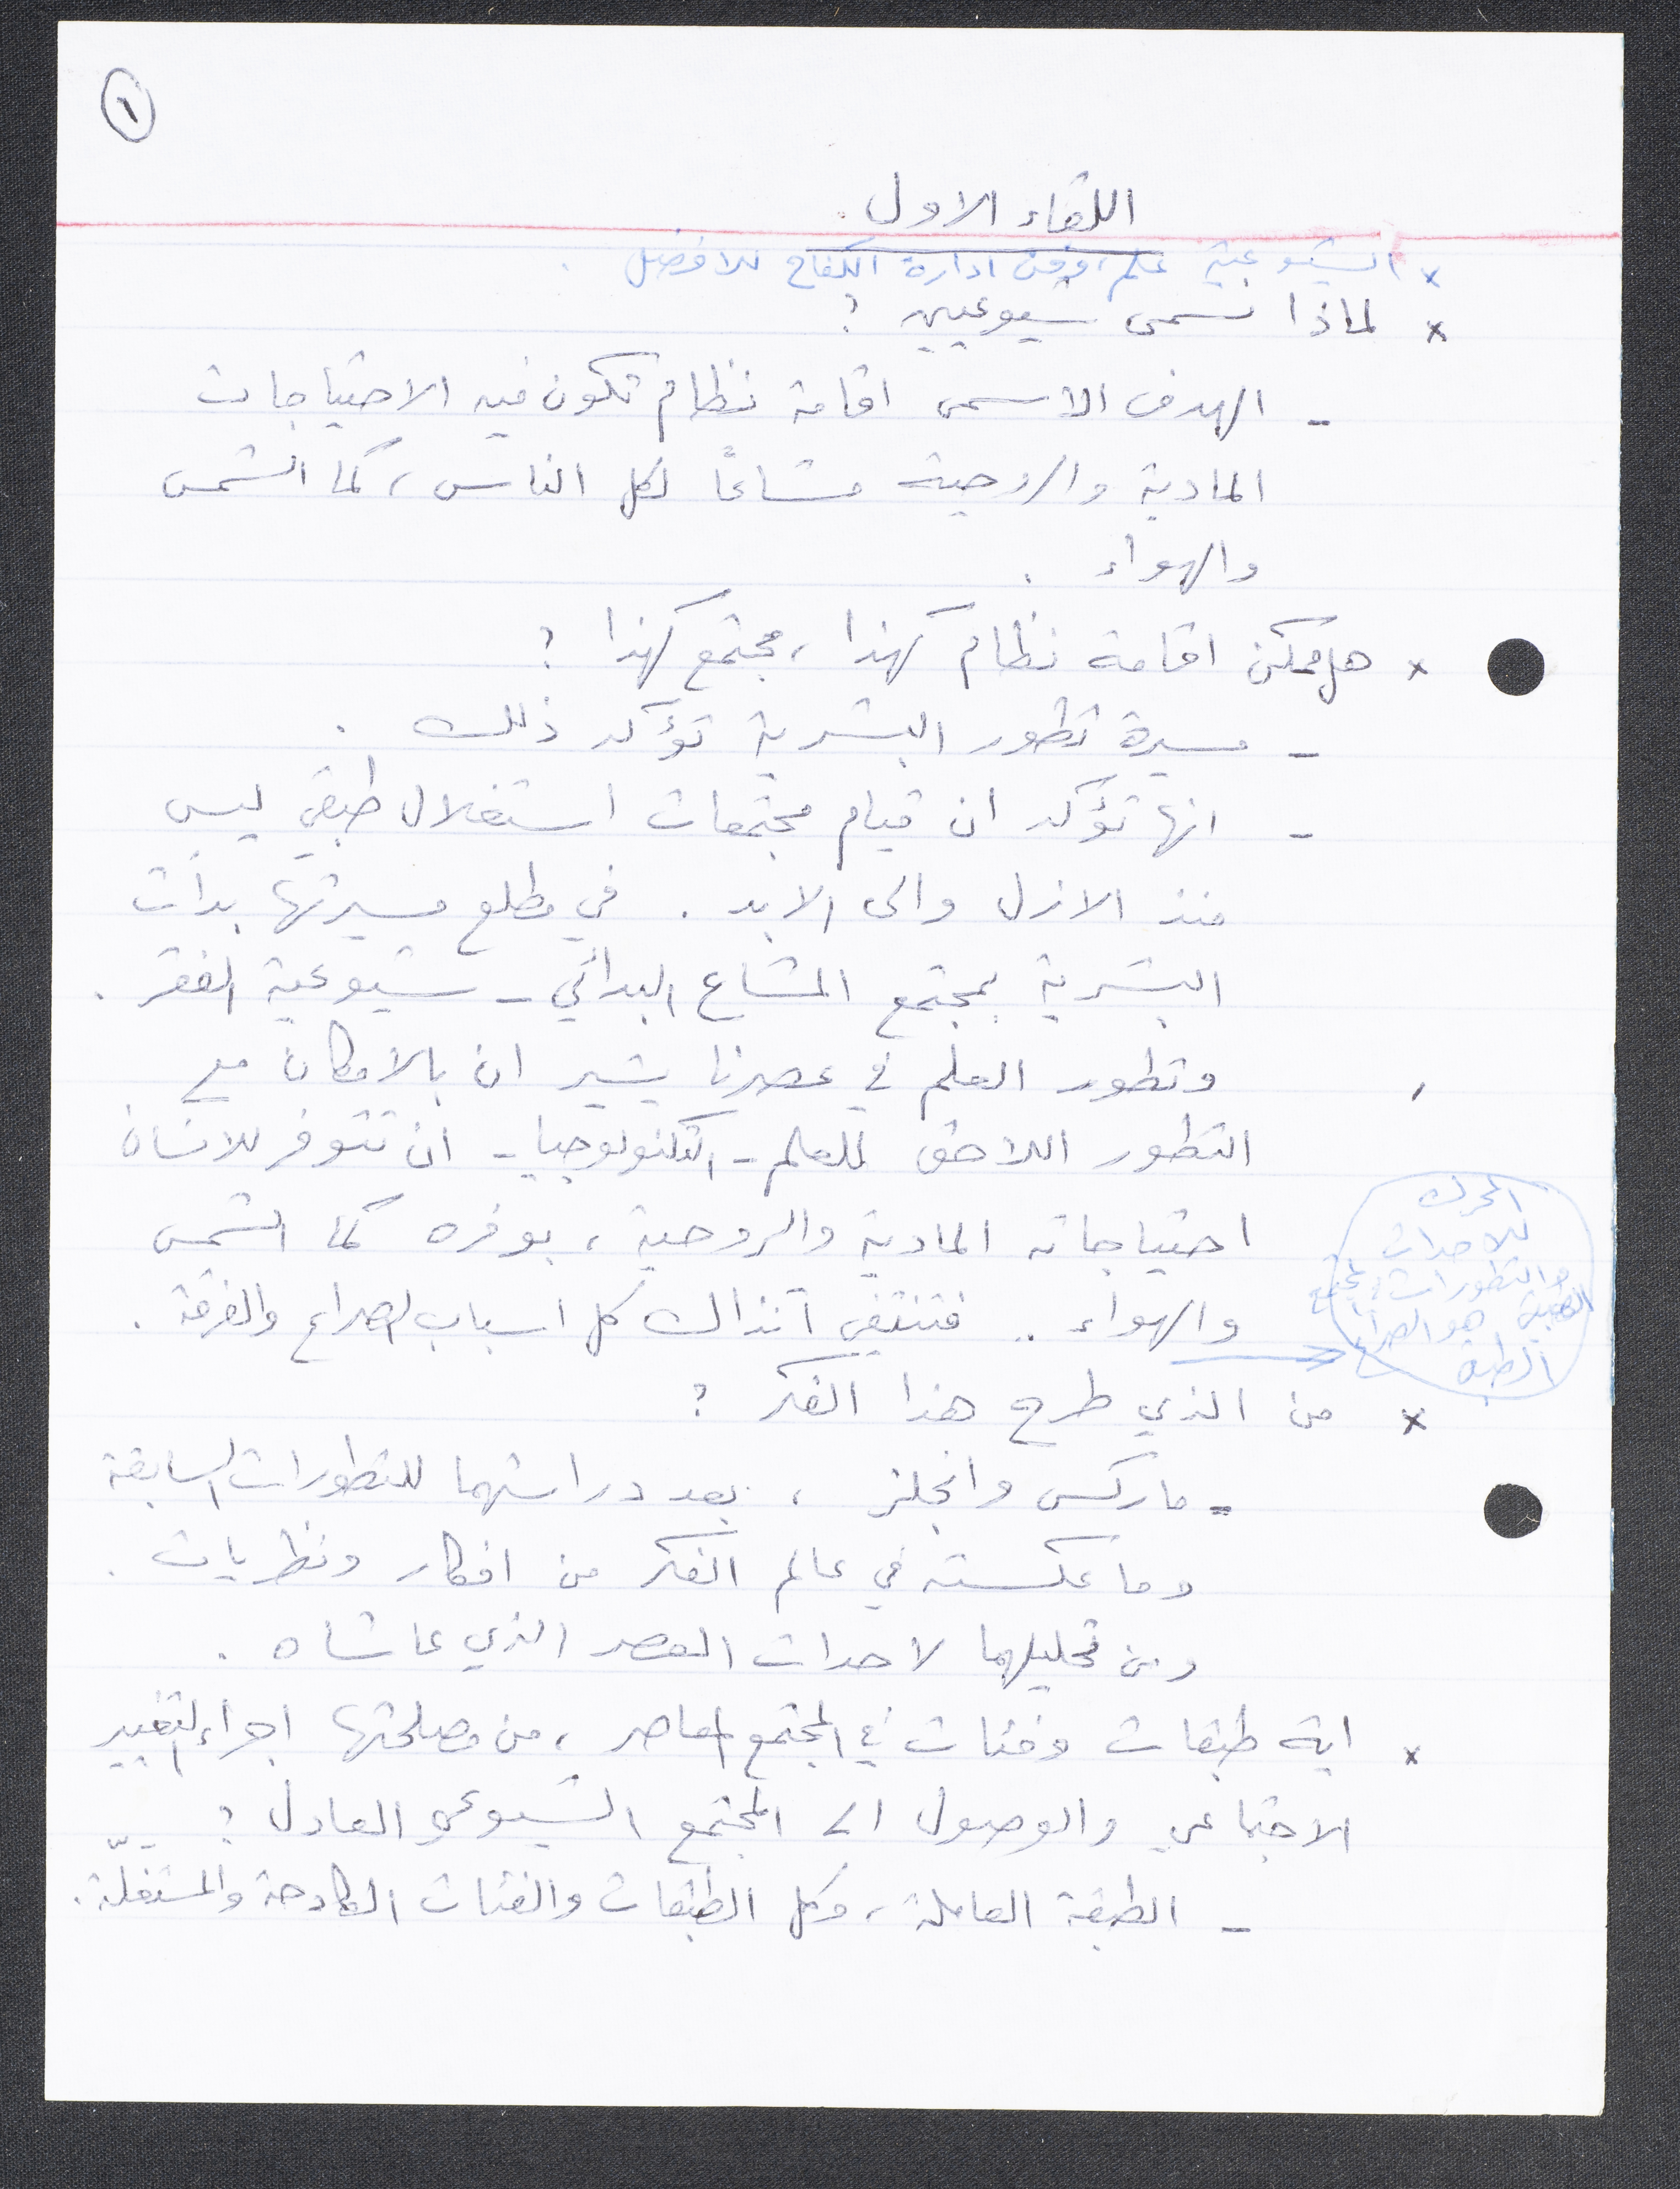 ١
اللقاء الاول.
× الشيوعية علم، وفن ادارة الكفاح للافضل.
× لماذا نسمى شيوعيين؟
- الهدف الاسمى اقامة نظام تكون فيه الاحتياجات
المادية والروحية مشاعًا لكل الناس، كما الشمس
والهواء.
× هل ممكن اقامة نظام كهذا، مجتمع كهذا؟
- مسيرة تطور البشرية تؤكد ذلك.
- انها تؤكد ان قيام مجتمعات استغلال طبقي ليس
منذ الازل والى الابد. في مطلع مسيرتها بدأت
البشرية بمجتمع المشاع البدائي - شيوعية الفقر.
وتطور العلم في عصرنا يشير ان بالامكان مع
التطور اللاحق للعلم - التكنولوجيا - ان تتوفر للانسان
احتياجاته المادية والروحية، بوفره كما الشمس
والهواء .. فتنتفي آنذاك كل اسباب الصراع والفرقة.
المحرك
للاحداث
والتطورات في المجتمع
الطبقي هو الصراع
الطبقي
× من الذي طرح هذا الفكر؟
- ماركس وانجلز، بعد دراستهما للتطورات السابقة
وما عكسته في عالم الفكر من افكار ونظريات.
ومن تحليلهما لاحداث العصر الذي عاشاه.
× اية طبقات وفئات في المجتمع المعاصر، من مصلحتها اجراء التغيير
الاجتماعي والوصول الى المجتمع الشيوعي العادل؟
- الطبقة العاملة، وكل الطبقات والفئات الكادحة والمستغَلّة.